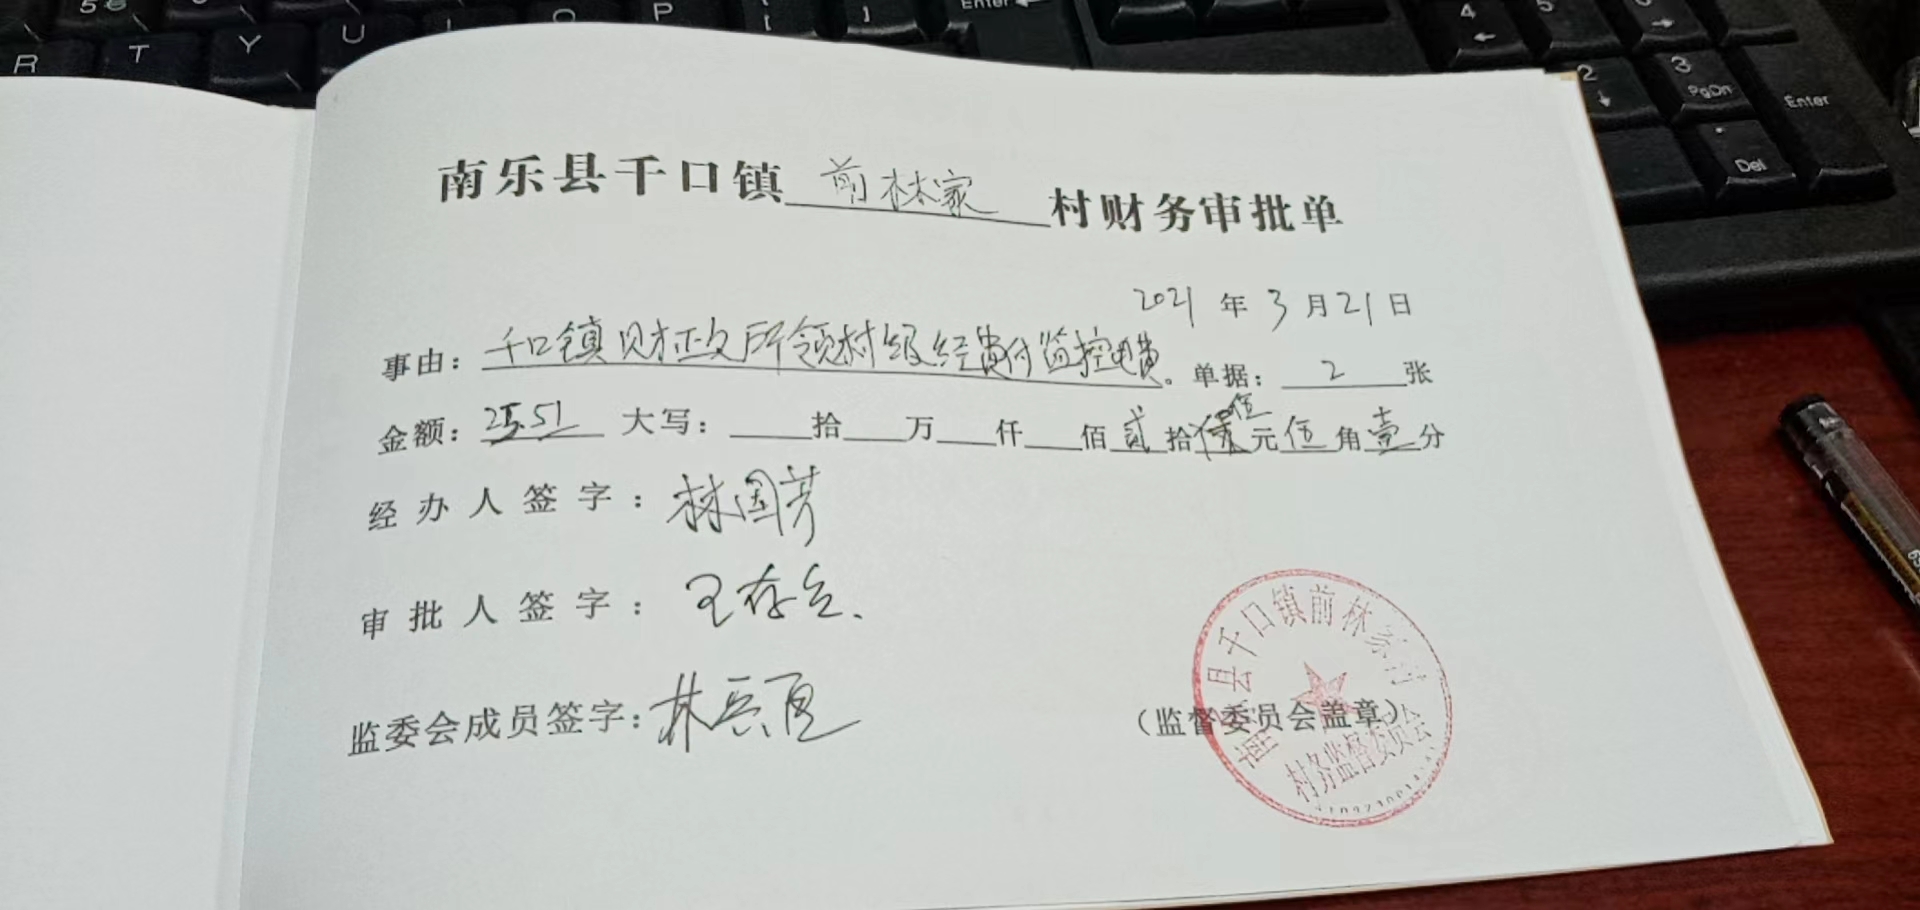 南乐县千口镇前林家村财务审批单
2021年3月21日
事由：千口镇财政所领村级经费付监控电费。单据：2张
金额：25.51 大写：____拾____万____仟____佰贰拾伍元伍角壹分
经办人签字：林国芳
审批人签字：王存
监委会成员签字：林兵
（监督委员会盖章）
南乐县千口镇前林家村
村务监督委员会
5
R
T
Y
U
O
P
[
]
Enter
4
5
6
2
3
PgDn
Enter
Del